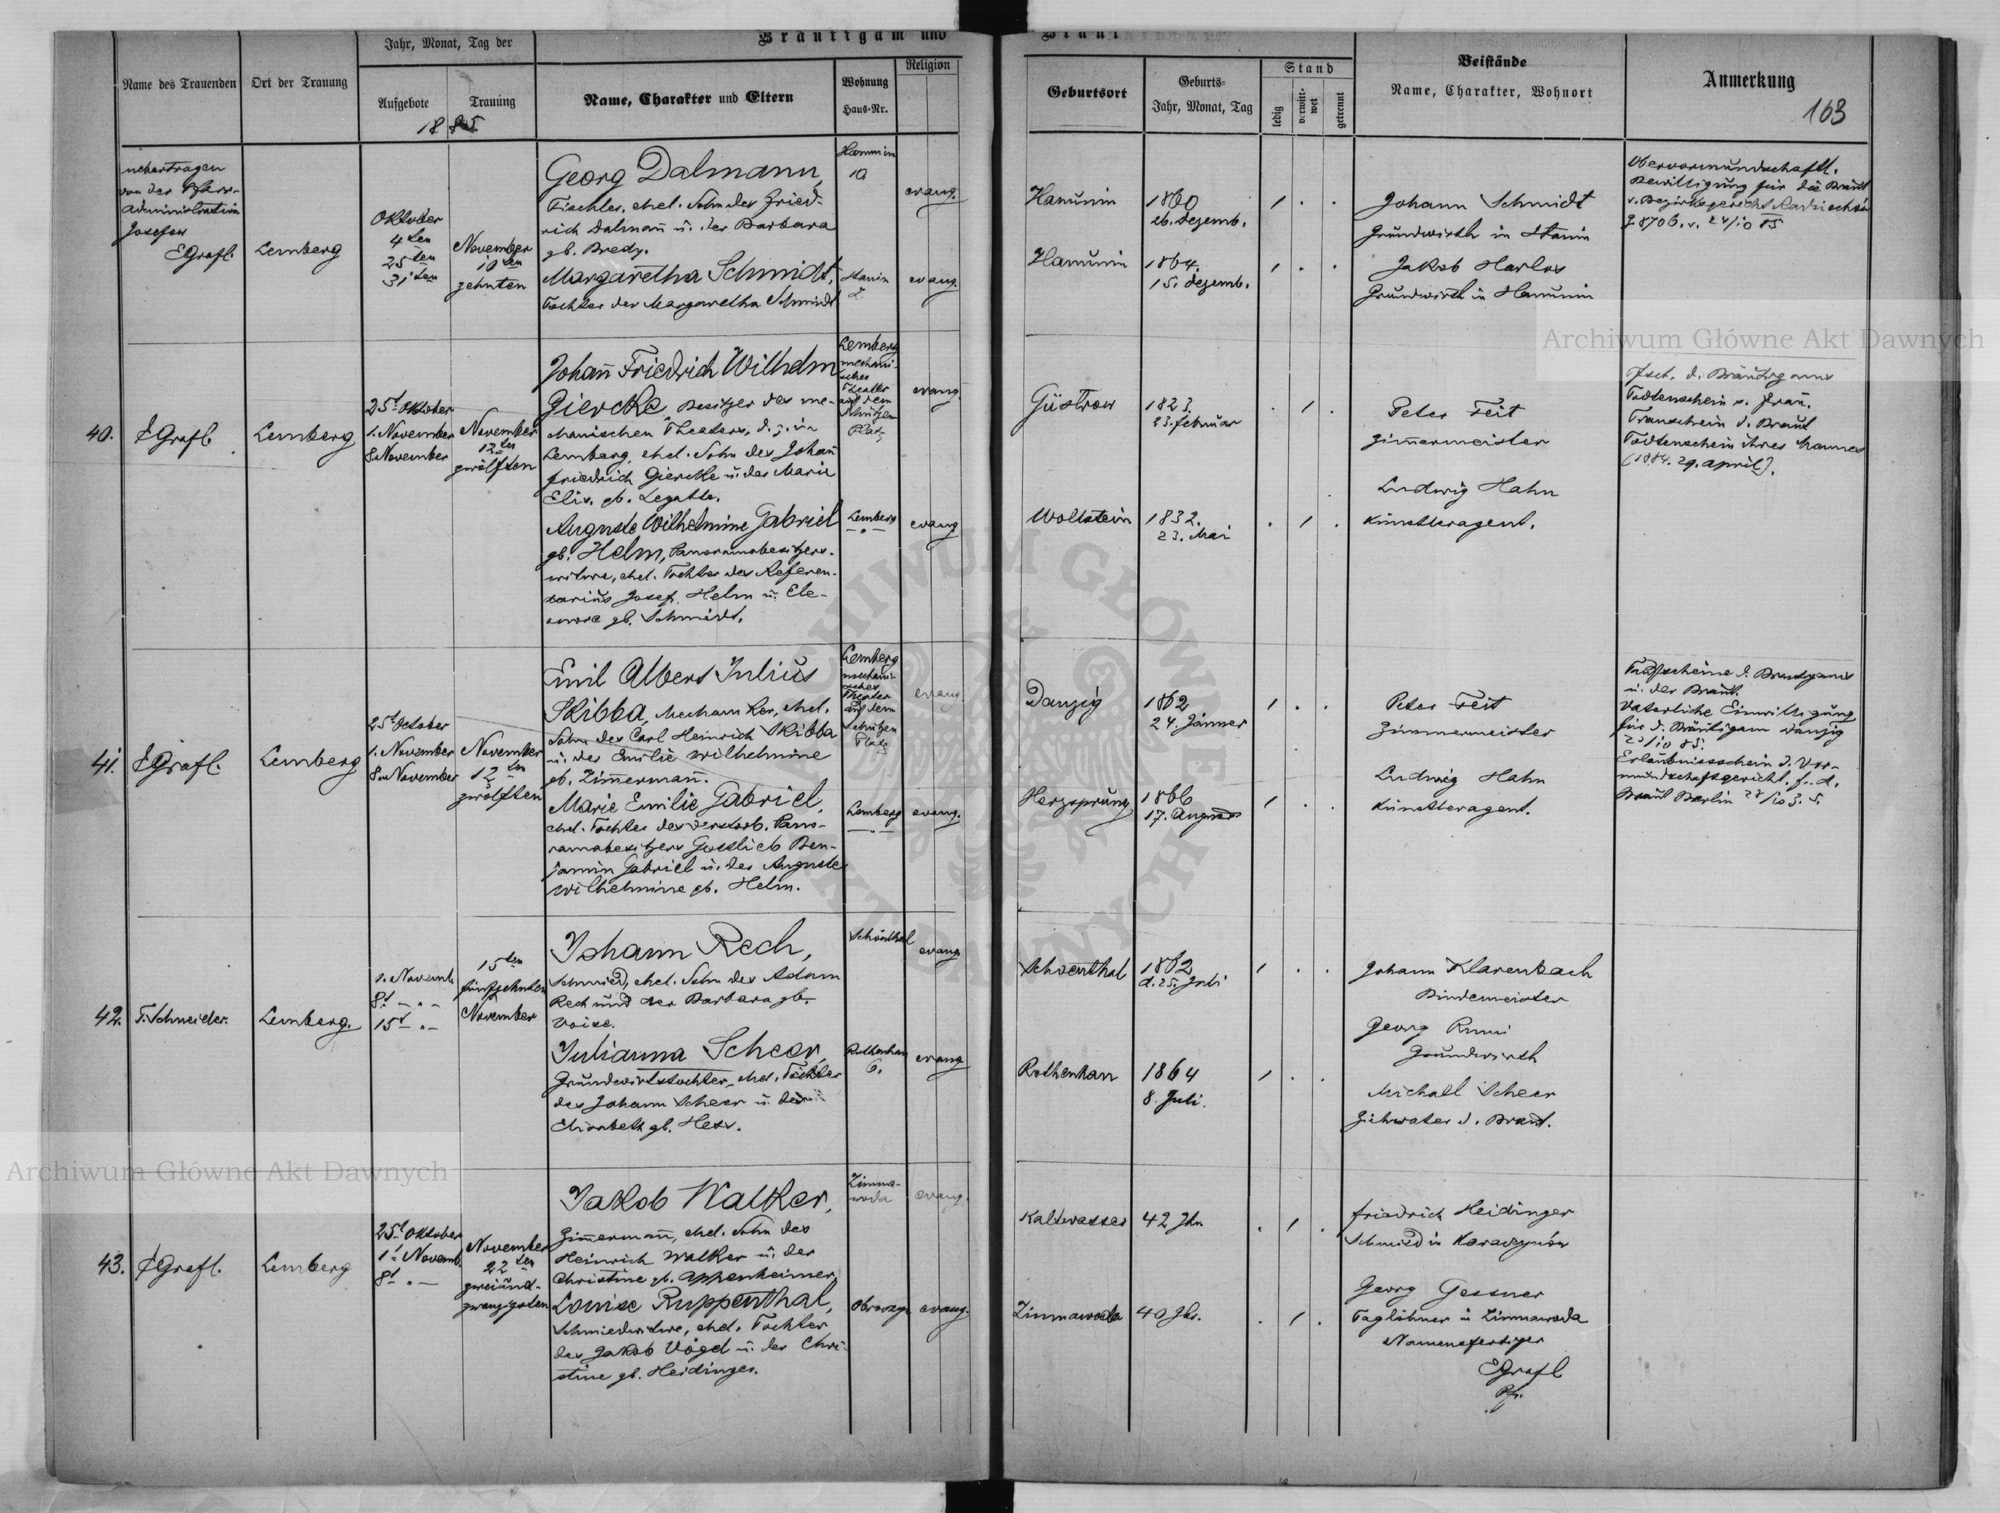 Jahr, Monat, Tag der
Bräutigam und
Braut
Name des Trauenden
Ort der Trauung
Aufgebote
Trauung
1885
Name, Charakter und Eltern
Wohnung
Haus-Nr.
Religion
Geburtsort
Geburts-
Jahr, Monat, Tag
Stand
ledig
verwitt-
wet
getrennt
Beistände
Name, Charakter, Wohnort
Anmerkung
163
uebertragen
von der Pfarr-
administration
Josefow
EGrafl.
Lemberg
Oktober
4ten
25ten
31ten
November
10ten
zehnten
Georg Dalmann,
Tischler, ehel. Sohn des Fried-
rich Dalmann u. der Barbara
gb. Bredy.
Margaretha Schmidt,
Tochter der Margaretha Schmidt
Hanunin
10
Stanin
evang.
evang.
Hanunin
1860
26. Dezemb.
Hanunin
1864.
15. Dezemb.
Johann Schmidt
Grundwirth in Stanin
Jakob Harlos
Grundwirth in Hanunin
Obervormundschaftl.
Bewilligung für die Braut
v. Bezirksgericht Radziechów
24/10 85
Archiwum Główne Akt Dawnych
40.
EGrafl
Lemberg
25t Oktober
1. November
8. November
November
12ten
zwölften
Johann Friedrich Wilhelm
Giercke, Besitzer des me-
chanischen Theaters, d. z. in
Lemberg, ehel. Sohn des Johann
Friedrich Giercke u. der Marie
Elis. gb. Legatte.
Auguste Wilhelmine Gabriel
gb. Helm, Panoramabesitzers-
witwe, ehel. Tochter des Referen-
darius Josef Helm u. Ele-
onore gb. Schmidt.
Lemberg
mechani-
sches
Theater
auf dem
Schützen
Platz
Lemberg
evang.
evang
Güstrow
1823.
23. Februar
Wollstein
1832.
23. Mai
Peter Feit
Zimmermeister
Ludwig Hahn
Künstleragent.
Tfsch. d. Bräutigams
Todtenschein s. Frau.
Trauschein d. Braut
Todtenschein ihres Mannes
(1884. 29. April).
41.
EGrafl.
Lemberg
25t October
1. November
8. November
November
12ten
zwölften
Emil Albert Julius
Skibba, Mechaniker, ehel.
Sohn des Carl Heinrich Skibba
u. der Emilie Wilhelmine
gb. Zimmermann.
Marie Emilie Gabriel,
ehel. Tochter des verstorb. Pano-
ramabesitzers Gottlieb Ben-
jamin Gabriel u. der Auguste
Wilhelmine gb. Helm.
Lemberg
mechani-
sches
Theater
auf dem
Schützen
Platz
Lemberg
evang.
evang.
Danzig
1862
24. Jänner
Herzsprung
1866
17. August
Peter Feit
Zimmermeister
Ludwig Hahn
Künstleragent.
Taufscheine d. Bräutigams
u. der Braut.
Väterliche Einwilligung
für d. Bräutigam Danzig
Erlaubnisschein d. Vor-
mundschaftsgericht. f. d.
Braut Berlin
42.
T. Schneider.
Lemberg.
1. Novemb.
8t
15t
15ten
fünfzehnten
November
Johann Rech,
Schmied, ehel. Sohn des Adam
Rech und der Barbara gb.
Voise.
Julianna Scheer,
Grundwirtstochter, ehel. Tochter
des Johann Scheer u. der
Elisabeth gb. Hess.
Schönthal
Rothenhan
6.
evang.
evang
Schoenthal
1862
d. 25. Juli
Rothenhan
1864
8. Juli.
Johann Klarenbach
Bindemeister
Georg
Grundwirth
Michael Scheer
Ziehvater d. Braut.
Archiwum Główne Akt Dawnych
43.
EGrafl.
Lemberg
25t Oktober
1t Novemb.
8t
November
22ten
zweiund-
zwanzigsten
Jakob Walker,
Zimmermann, ehel. Sohn des
Heinrich Walker u. der
Christine gb. Oppenheimer
Louise Ruppenthal,
Schmiedwitwe, ehel. Tochter
des Jakob Vogel u. der Chri-
stine gb. Heidinger.
Zimna-
woda
evang.
evang.
Kaltwasser
42 Jhr
Zimnawoda
40 Jhr.
Friedrich Heidinger
Schmied in
Georg Gessner
Taglöhner in Zimnawoda
Namensfertiger
EGrafl
Pfr.
ARCHIWUM GŁÓWNE AKT DAWNYCH